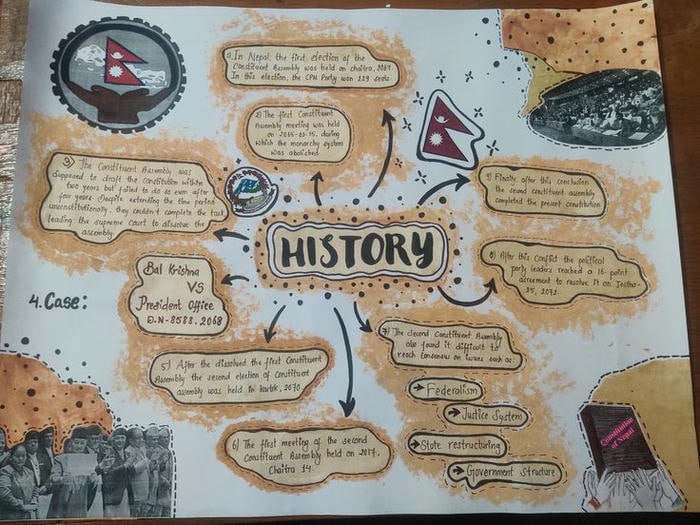 HISTORY
1) In Nepal, the first election of the
Constituent Assembly was held on chaitra, 2064.
In this election, the CPN Party won 229 seats
2) The first Constituent
Assembly meeting was held
on 2065-02-15, during
which the monarchy system
was abolished.
3) The Constituent Assembly was
supposed to draft the constitution within
two years but failed to do so even after
four years. Despite extending the time period
unconstitutionally, they couldn't complete the task
leading the supreme court to dissolve the
assembly.
4. Case:
Bal Krishna
VS
President Office
D.N-8588, 2068
5) After the dissolved the first Constituent
Assembly the second election of constituent
assembly was held in kartik, 2070
6) The first meeting of the second
Constituent Assembly held on
Chaitra 14.
7) The Second Constituent Assembly
also found it difficult to
reach consensus on issues such as:
Federalism
Justice System
State restructuring
Government Structure
8) After this Conflict the political
party leaders reached a 16-point
agreement to resolve it on Jestha-
25, 2072.
9) Finally after this conclusion
the second constituent assembly
completed the present constitution
Constitution
of Nepal